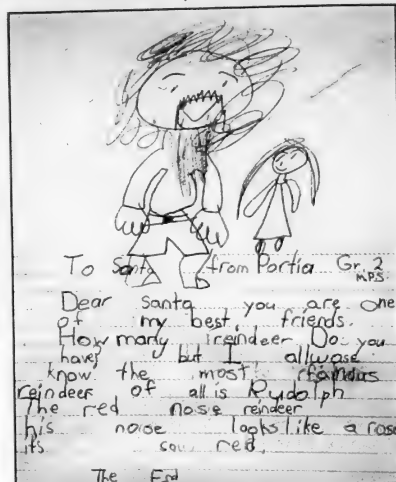 To Santa from Portia Gr. 2
MPS
Dear Santa you are one
of my best friends.
How many reindeer Do you
have, but I allwase
know the most rfamous
reindeer of all is Rudolph
The red noise reindeer
his noise looks like a rose
its sou red.
The End